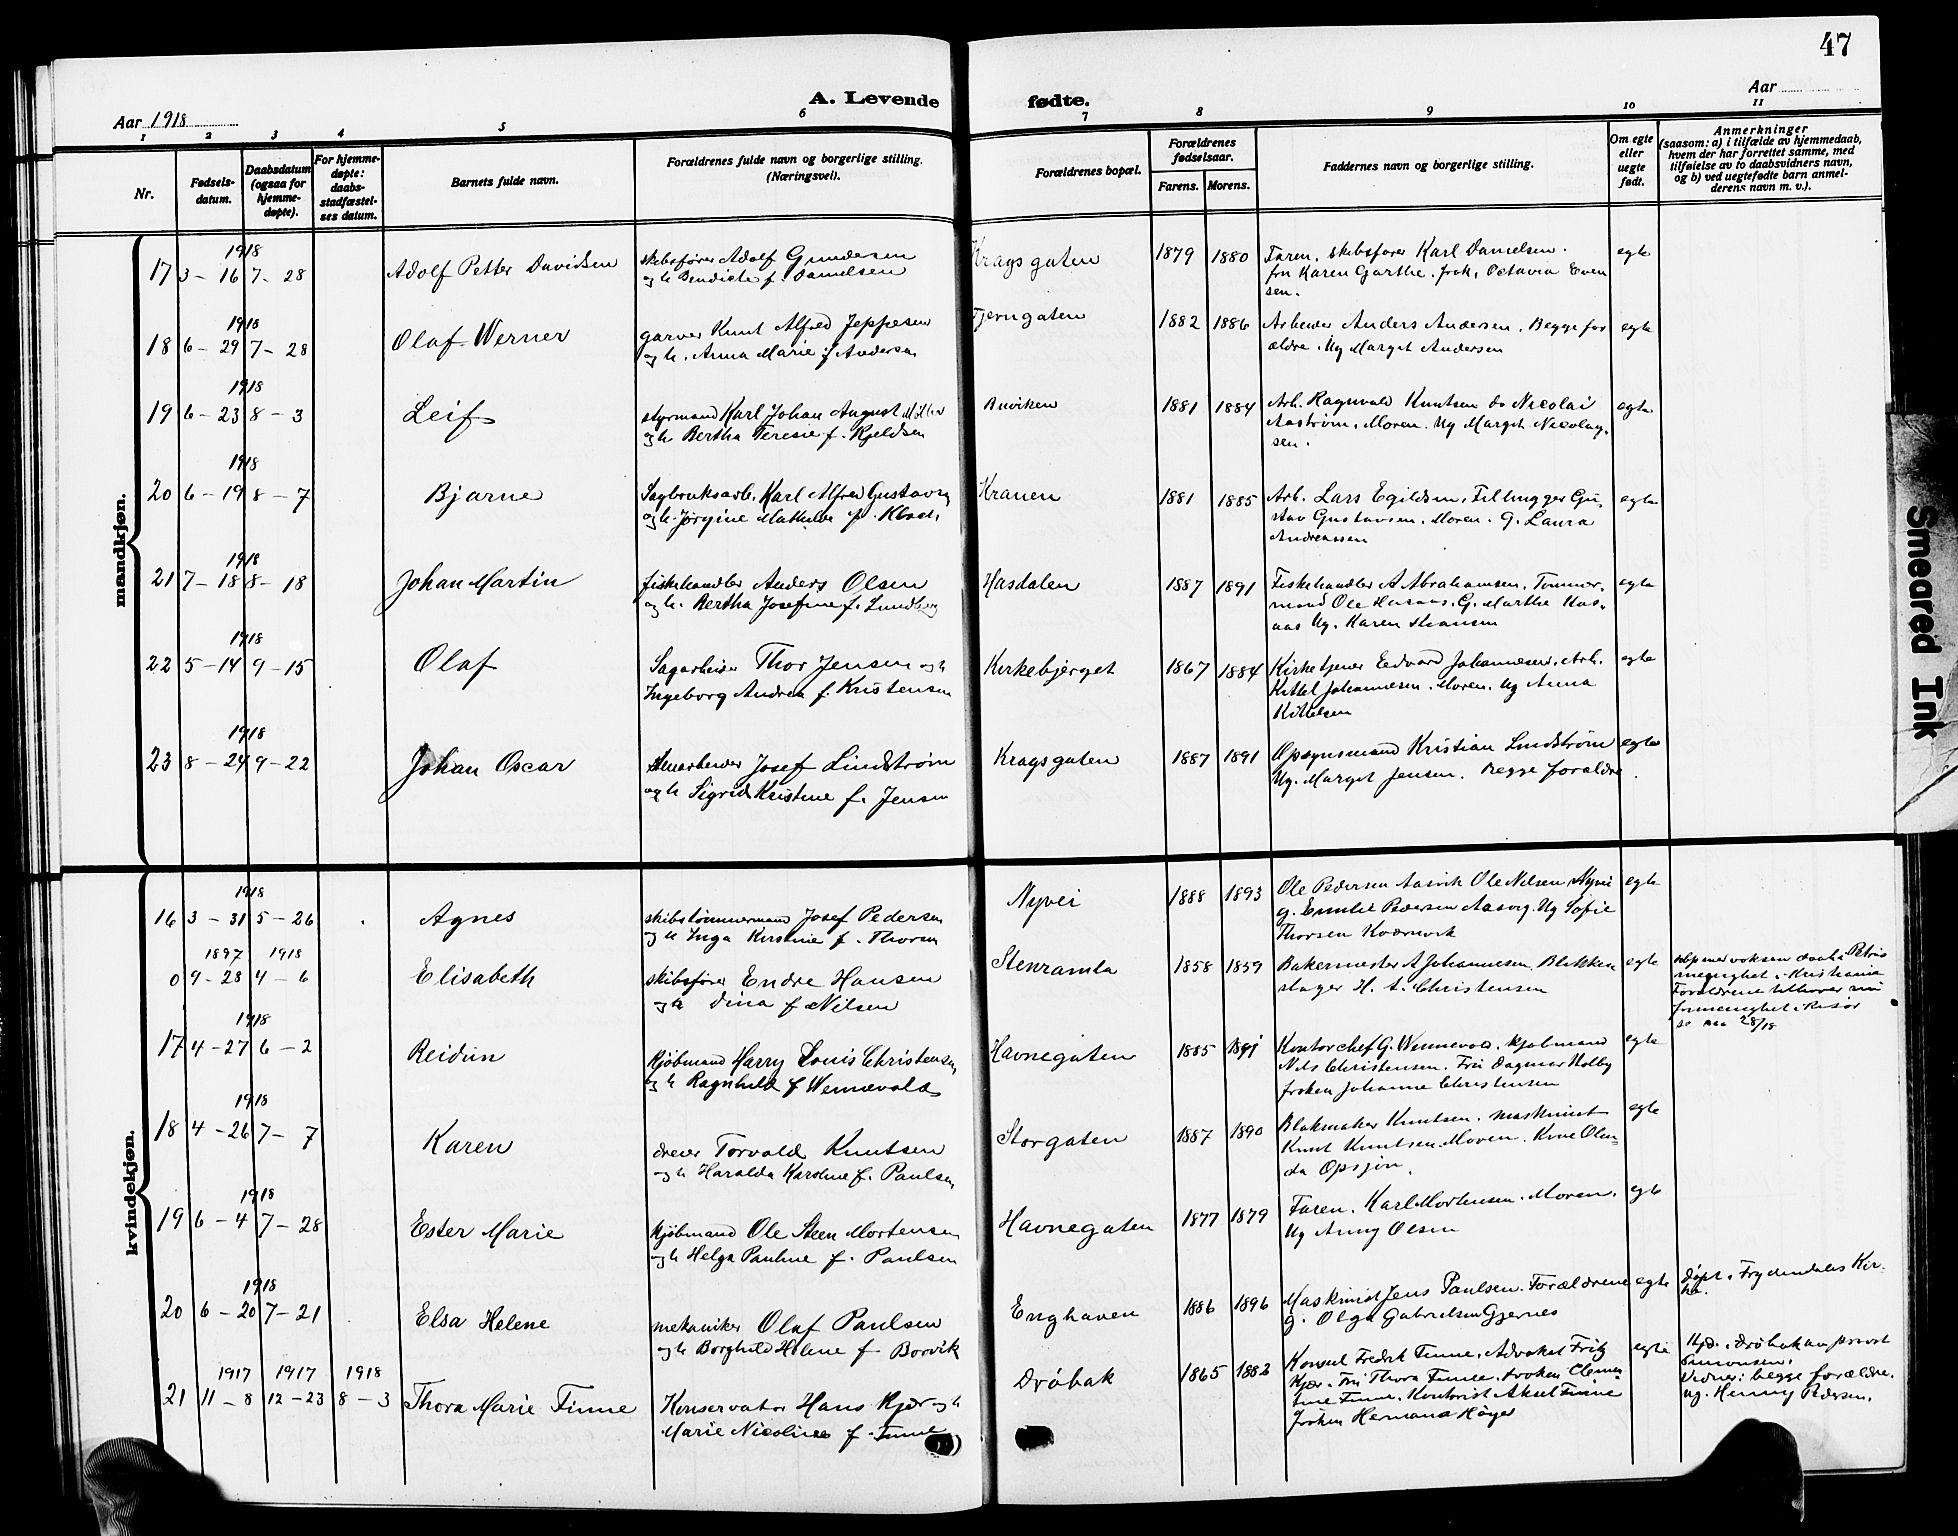 47
A. Levende fødte.
Aar 1918
Aar
1 2 3 4 5 6 7 8 9 10 11
Nr.
Fødsels-
datum.
Daabsdatum
(ogsaa for
hjemme-
døpte).
For hjemme-
døpte:
daabs-
stadfæstel-
ses datum.
Barnets fulde navn.
Forældrenes fulde navn og borgerlige stilling.
(Næringsvei).
Forældrenes bopæl.
Forældrenes
fødselsaar.
Farens. Morens.
Faddernes navn og borgerlige stilling.
Om egte
eller
uegte
født.
Anmerkninger
(saasom: a) i tilfælde av hjemmedaab,
hvem der har forrettet samme, med
tilføielse av to daabsvidners navn,
og b) ved uegtefødte barn anmel-
derens navn m. v.).
mandkjøn.
1918
17 3-16 7-28 Adolf Petter Davidsen
skibsfører Adolf Gundesen
og h. Bendicte f. Danielsen
Kragsgaten 1879 1880
Faren, skibsfører Karl Danielsen.
fru Karen Garthe. frøk. Octavia Even
sen.
egte
1918
18 6-29 7-28 Olaf Werner
garver Knut Alfred Jeppesen
og h. Anna Marie f. Andersen
Tjerngaten 1882 1886
Arbeider Anders Andersen. Begge for
ældre. Ug Marget Andersen
egte
1918
19 6-23 8-3 Leif
styrmand Karl Johan August
og h. Bertha Teresie f. Kjeldsen
Buviken 1881 1884
Arb. Ragnvald Knutsen do Nicolai
Aastrøm. Moren. Ug Marget Nicolay
sen.
egte
1918
20 6-19 8-7 Bjarne
Sagbruksarb. Karl Alfred Gustavsen
og h. Jørgine Mathilde f.
Kranen 1881 1885
Arb. Lars Egildsen. Filhugger Gu-
stav Gustavsen. Moren. G. Laura
Andreassen
egte
1918
21 7-18 8-18 Johan Martin
fiskehandler Anders Olsen
og h. Bertha Josefine f. Lundberg
Hasdalen 1887 1891
Fiskehandler A Abrahamsen. Tømmer-
mand Ole Hasaas. G. Marthe Has-
aas Ug. Karen Hansen
egte
1918
22 5-14 9-15 Olaf
Sagarbeider Thor Jensen og h
Ingeborg Andrea f. Kristensen
Kirkebjerget 1867 1884
Kirketjener Edvard Johannesen. Arb.
Kittel Johannesen. Moren. Ug Anna
Kittelsen
egte
1918
23 8-24 9-22 Johan Oscar
Stenarbeider Josef Lindstrøm
og h Sigrid Kristine f. Jensen
Kragsgaten 1887 1891
Opsynsmand Kristian Lindstrøm
Ug. Marget Jensen. Begge forældre.
egte
kvindekjøn.
1918
16 3-31 5-26 Agnes
skibstømmermand Josef Pedersen
og h Inga Kirstine f. Thorsen
Nyvei 1888 1893
Ole Pedersen Aasvik Ole Nilsen Nyvei
g. Emilie Pedersen Aasvig. Ug Sofie
Thorsen Kværnvik
egte
1897 1918
0 9-28 4-6 Elisabeth
skibsfører Endre Hansen
og h Dina f. Nilsen
Stenramla 1858 1859
Bakermester A Johannesen. Blikken
slager H. A. Christensen
egte
som voksen døbt i Petris
menighet i Kristiania
Forældrene tilhører
frimenighet i Risør
28/18
1918
17 4-27 6-2 Reidun
Kjøbmand Harry Louis Christensen
og h Ragnhild f Wennevold
Havnegaten 1885 1891
Kontorchef G. Wennevold. Kjøbmand
Nils Christensen. Fru Dagmar Holby
frøken Johanne Christensen
egte
1918
18 4-26 7-7 Karen
dreier Torvald Knutsen
og h Haralda Karoline f. Paulsen
Storgaten 1887 1890
Blokmaker Knutsen. maskinist
Knut Knutsen. Moren. Kone Olau-
da Opsjøn.
egte
1918
19 6-4 7-28 Ester Marie
Kjøbmand Ole Steen Mortensen
og h Helga Pauline f. Paulsen
Havnegaten 1877 1879
Faren. Karl Mortensen. Moren.
Ug Anny Olsen
egte
1918
20 6-20 7-21 Elsa Helene
mekaniker Olaf Paulsen
og h Borghild Helene f Borvik
Enghaven 1886 1896
Maskinist Jens Paulsen. Forældrene
g. Olga Gabrielsen Gjernes
egte
Døpt i Frydendals Kir-
ke.
1917 1917 1918
21 11-8 12-23 8-3 Thora Marie Finne
Konservator Hans Kjær og h
Marie Nicoline f. Finne
Drøbak 1865 1882
Konsul Fredrik Finne. Advokat Fritz
Kjær. Fru Thora Finne. Frøken Clemen-
tine Finne. Kontorist Aksel Finne
Frøken Hermana Høyer
egte
Hjd. i Drøbak av provst
Simonsen.
Vidner: begge forældre.
ug. Henny Pedersen.
Smeared Ink